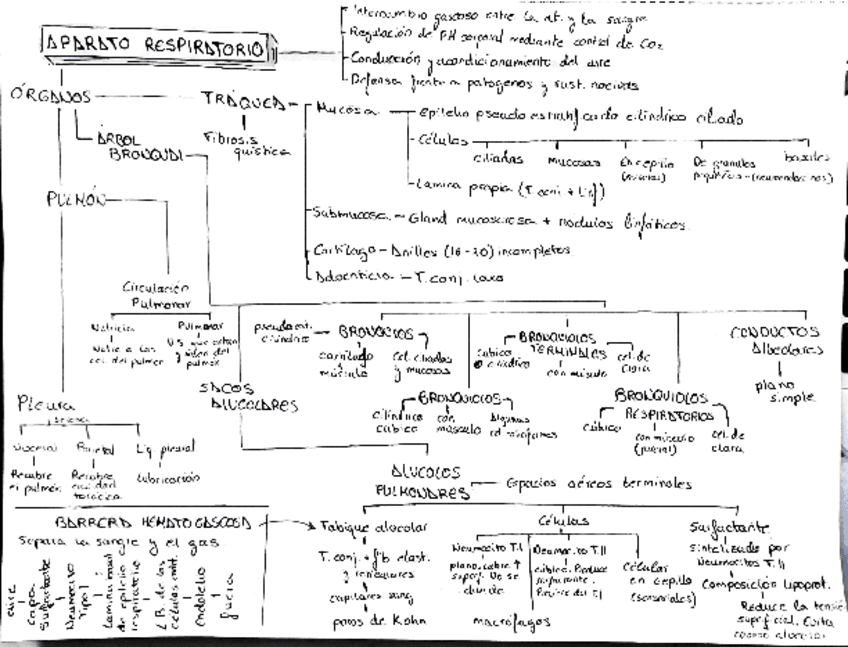 Intercambio gaseoso entre la at. y la sangre
Regulación de PH corporal mediante control de CO₂
APARATO RESPIRATORIO
Conducción y acondicionamiento del aire
Defensa frente a patogenos y sust. nocivas
ÓRGANOS
TRÁQUEA
Fibrosis
quística
Mucosa
Epitelio pseudoestratificado cilíndrico ciliado
Células
ciliadas
mucosas
En cepillo
De granulos
basales
Lamina propia (T. conj. + Lif)
Submucosa - Gland mucoserosa + nodulos linfáticos
Cartílago - Anillos (16-20) incompletos
Adventicia - T. conj. laxo
ÁRBOL
BRONQUIAL
PULMÓN
Circulación
Pulmonar
Nutricia
Nutre a las
cel. del pulmón
Pulmonar
V.S. que entran
y salen del
pulmón
pseudoest.
cilíndrico
BRONQUIOS
cartílago
músculo
cel. ciliadas
y mucosas
BRONQUIOLOS
TERMINALES
cúbico
o cilíndrico
con músculo
cel. de
clara
CONDUCTOS
Alveolares
plano
simple
SACOS
ALVEOLARES
BRONQUIOLOS
cilíndrico
cúbico
con
músculo
Algunas
BRONQUIOLOS
RESPIRATORIOS
cúbico
con músculo
(parcial)
cel. de
clara
Pleura
serosa
Visceral
Recubre
el pulmón
Parietal
Recubre
cavidad
torácica
Líq. pleural
Lubricación
ALVEOLOS
PULMONARES
Espacios aéreos terminales
BARRERA HEMATOGASEOSA
Separa la sangre y el gas
aire
capa
surfactante
Neumocito
Tipo I
Lamina basal
de epitelio
respiratorio
L.B. de las
células endt.
Endotelio
Tabique alveolar
T. conj. + fib elast.
y reticulares
capilares sang
poros de Kohn
Células
Neumocito T.I
plano, cubre ↑
superf. No se
divide
Neumocito T.II
cúbico. Produce
surfactante.
Células
en cepillo
(sensoriales)
macrófagos
Surfactante
Sintetizado por
Neumocitos T.II
Composición lipoprot.
Reduce la tensión
superficial. Evita